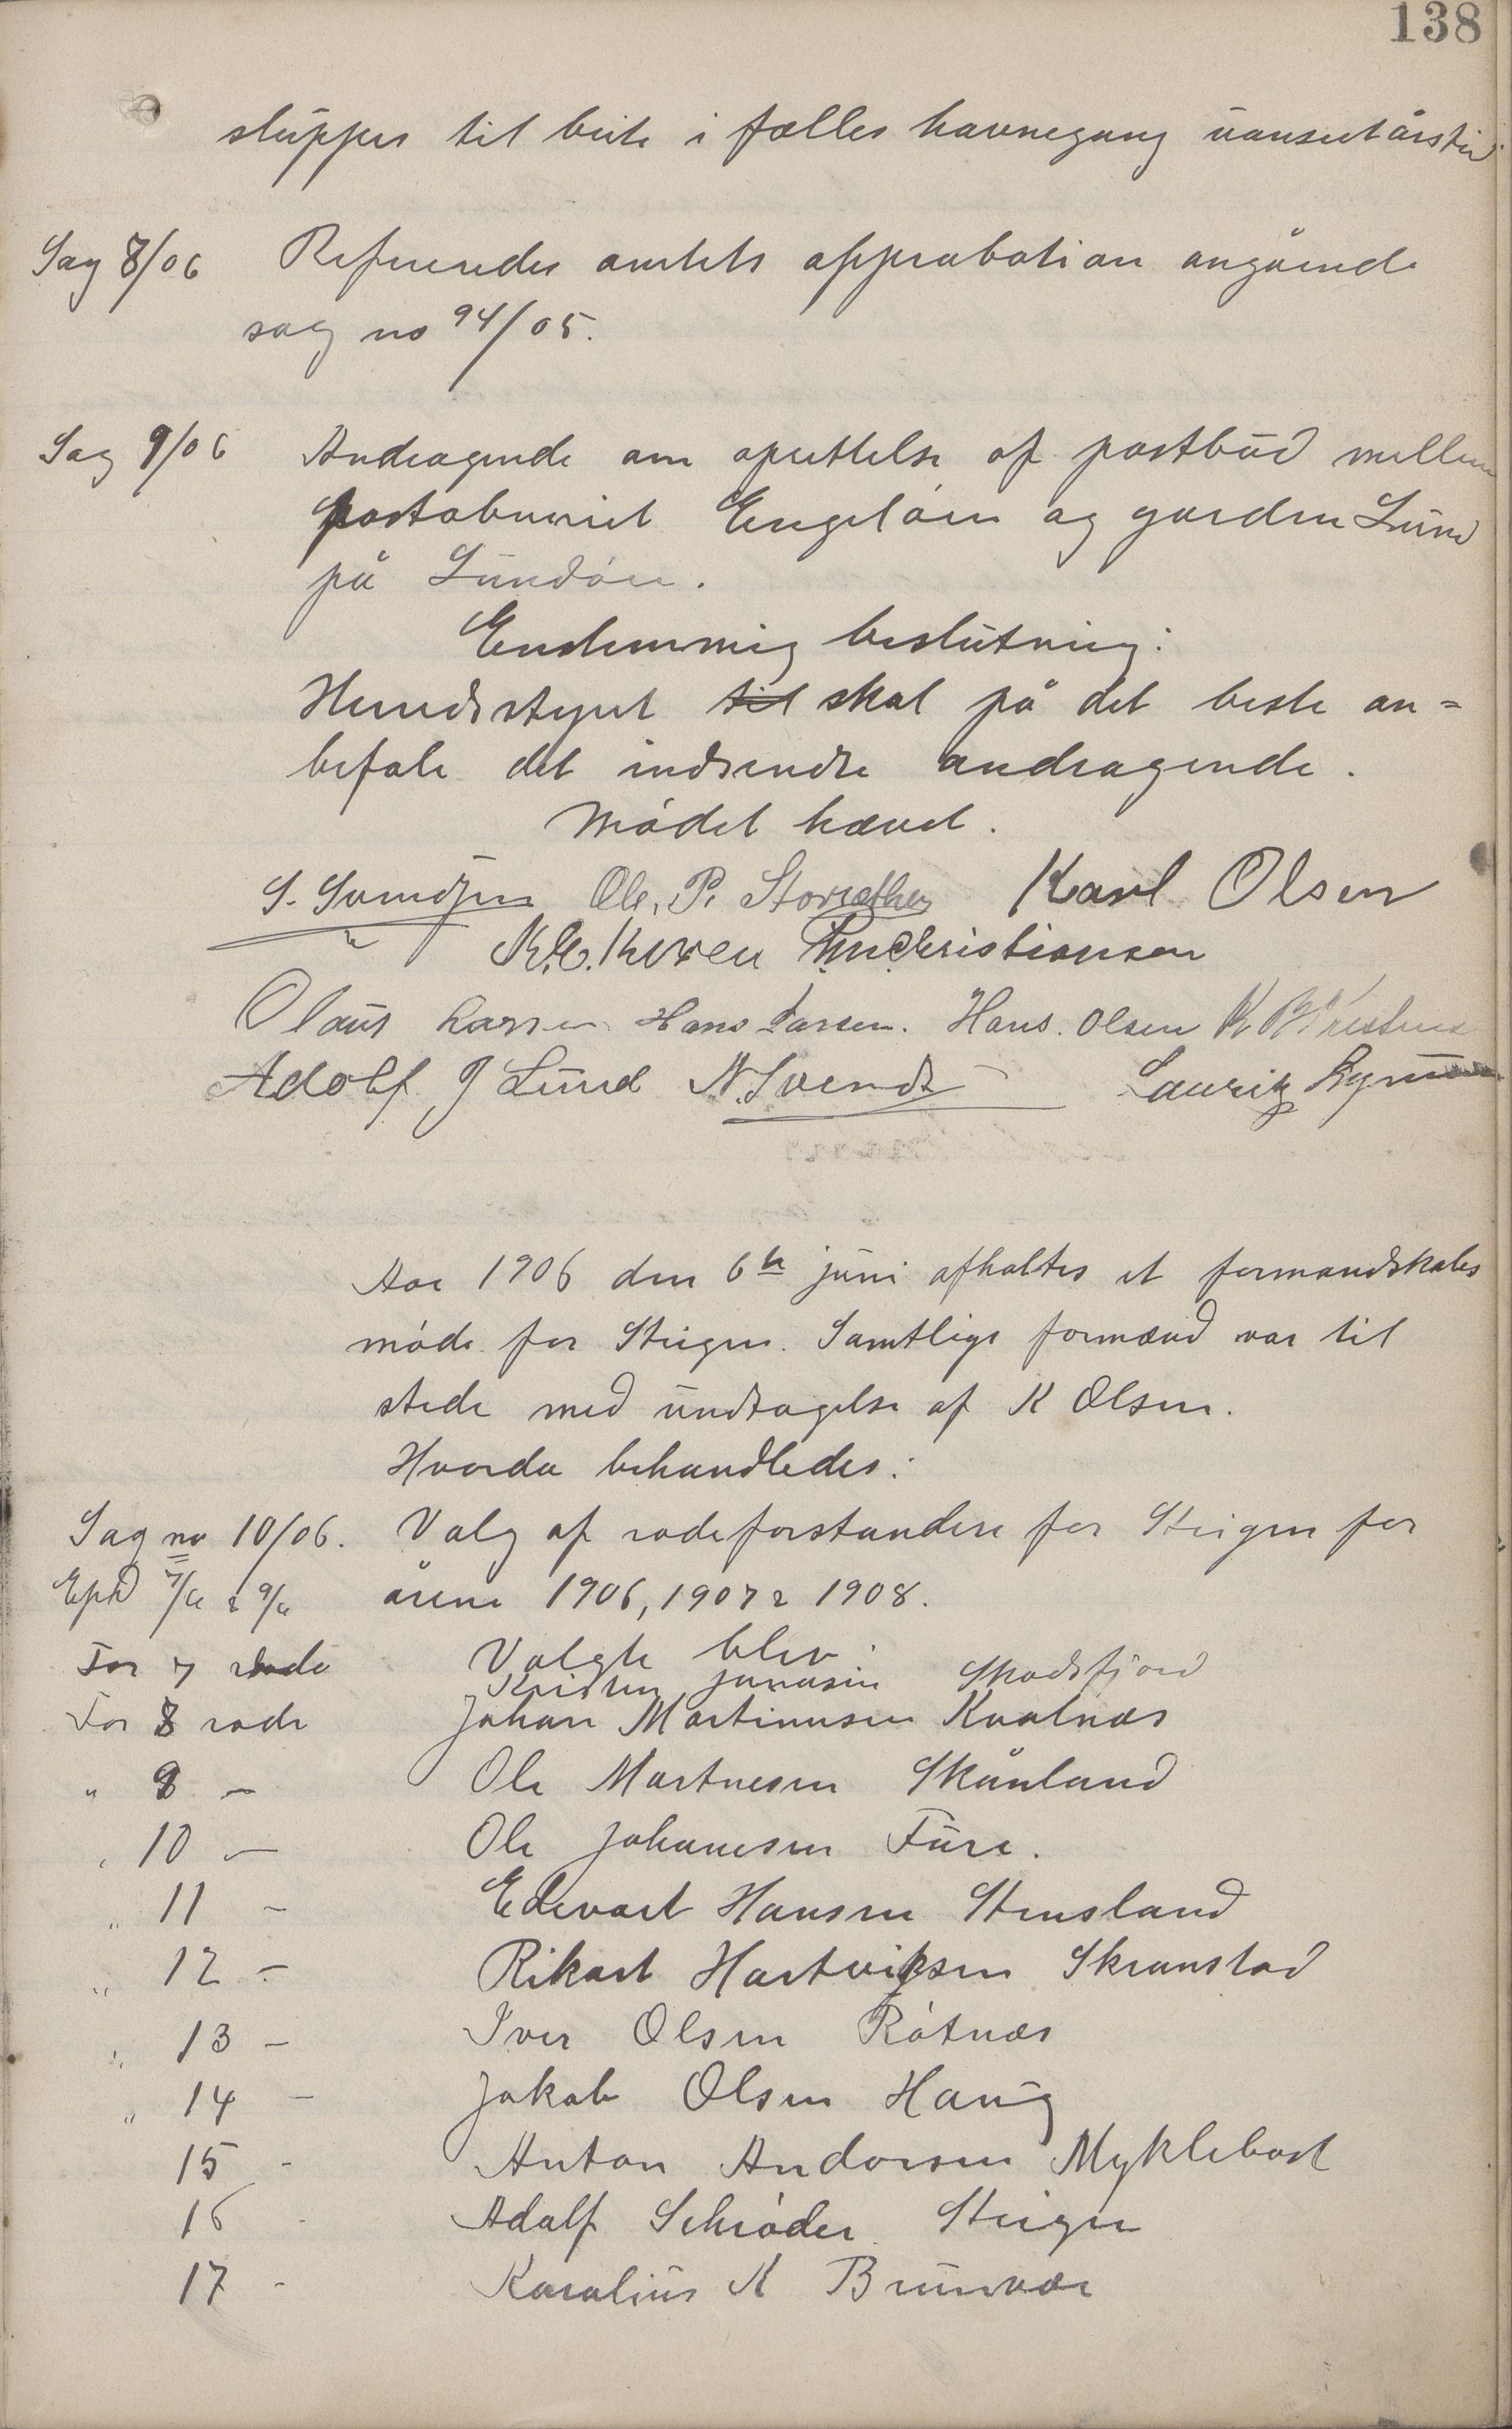 138
slippes til beite i fælles havnegang uanset årstid
Sag 8/06 Refereredes amtets approbation angående
sag no 94/05.
Sag 9/06 Andragende om oprettelse af postbud mellem
postaberiet Engeløen og garden Lund
på Lundøen.
Enstemmig beslutning:
Herredsstyret til skal på det beste an=
befale det indsendte andragende.
Mødet hævet.
S. Svendsen Ole. P. Storsæther Karl Olsen
K. E. Christiansen
Olaus Larsen Hans Larsen. Hans. Olsen
Adolf J Lund N. Svends Lauritz
Aar 1906 den 6te juni afholtes et formandskabs
møde for Steigen. Samtlige formænd var til
stede med undtagelse af K Olsen.
Hvorda behandledes:
Sag no 10/06. Valg af rodeforstandere for Steigen for
Epd 7/6 & 9/6 årene 1906, 1907 & 1908.
Valgte blev:
For 7 rode Kristen Jonassen Skodsfjord
For 8 rode Johan Martinusen Kvalnæs
" 9 - Ole Martnesen Skånland
" 10 - Ole Johanesen Füre.
" 11 - Edevart Hansen Stensland
" 12 - Rikart Hartviksen Skranstad
" 13 - Iver Olsen Røtnæs
" 14 - Jakob Olsen Haug
15 - Anton Andorsen Myklebost
16 - Adolf Schrøder Steigen
17 - Karolius K Brunvær